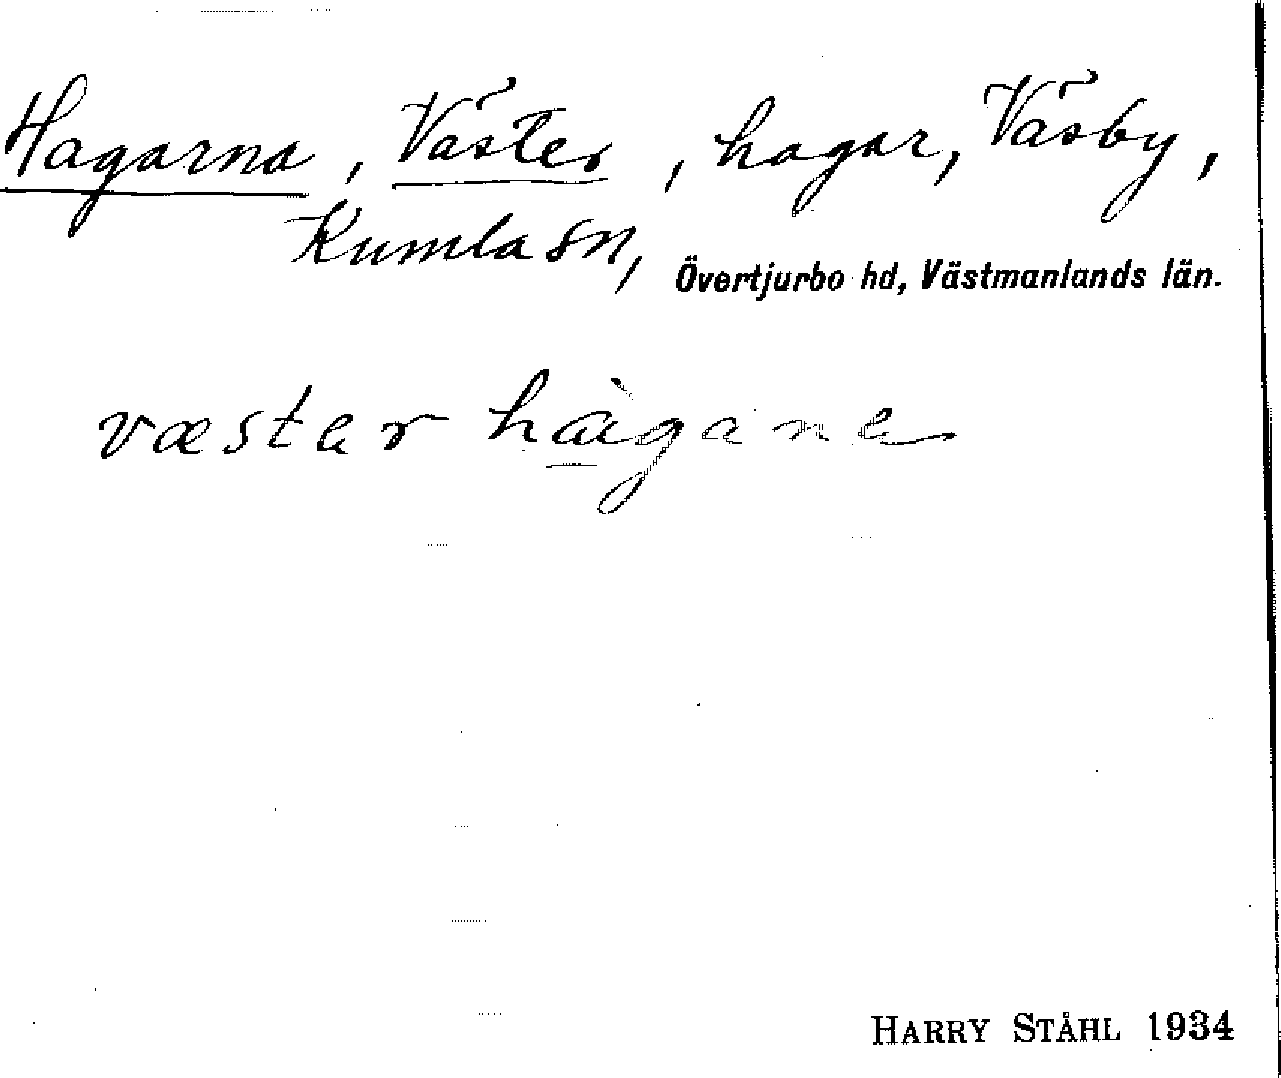 Hagarna, Väster, hagar, Väsby,
Kumla sn, Övertjurbo hd, Västmanlands län.
væstar hàgana
HARRY STÅHL 1934